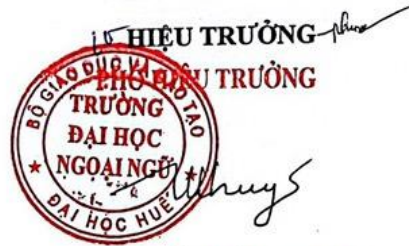 HIỆU TRƯỞNG
PHÓ HIỆU TRƯỞNG
BỘ GIÁO DỤC VÀ ĐÀO TẠO
TRƯỜNG
ĐẠI HỌC
NGOẠI NGỮ
ĐẠI HỌC HUẾ